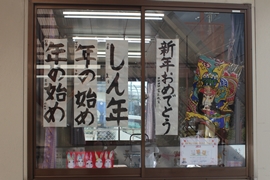 新年おめでとう
しん年
年の始め
年の始め